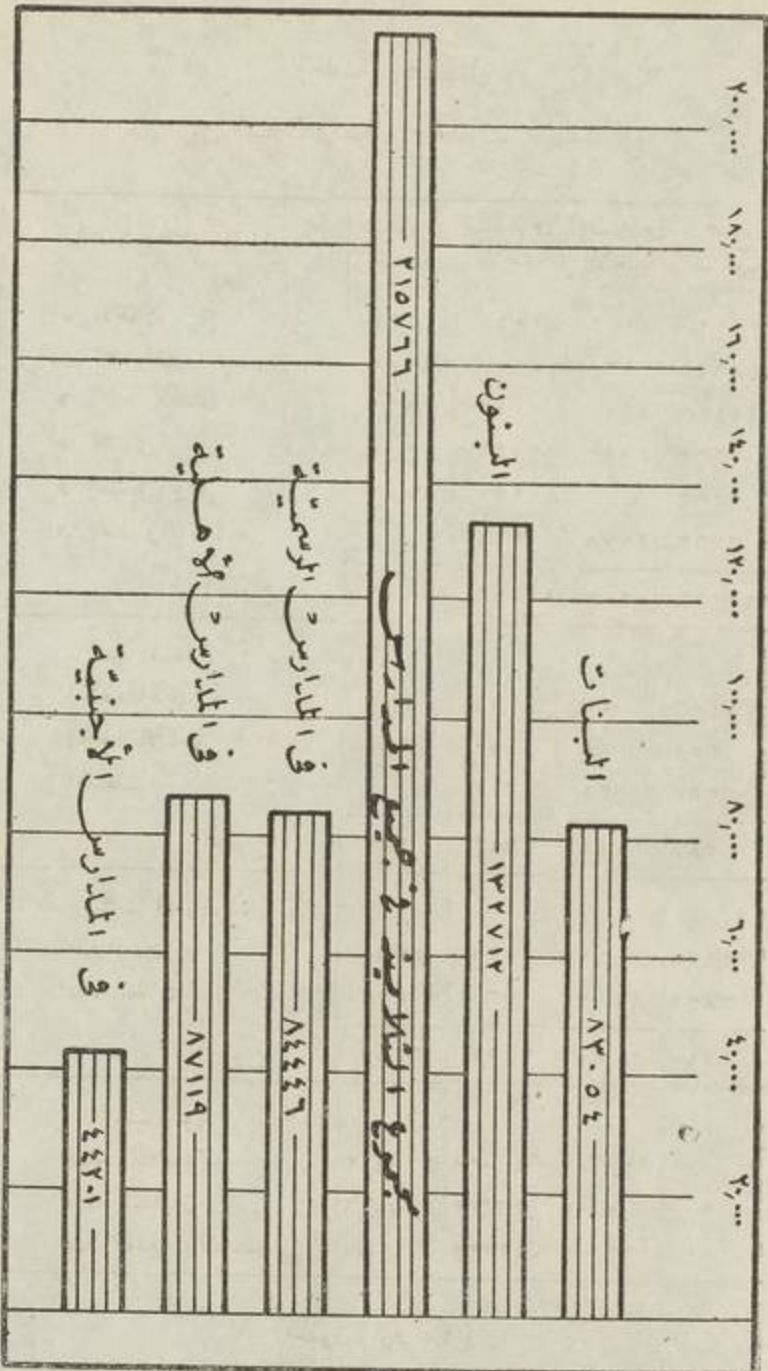 ٢٠٠,٠٠٠
١٨٠,٠٠٠
١٦٠,٠٠٠
١٤٠,٠٠٠
١٢٠,٠٠٠
١٠٠,٠٠٠
٨٠,٠٠٠
٦٠,٠٠٠
٤٠,٠٠٠
٢٠,٠٠٠
البنات
٨٣٠٥٤
البنون
١٣٢٧١٢
مجموع التلاميذ في جميع المدارس
٢١٥٧٦٦
في المدارس الرسميّة
٨٤٤٤٦
في المدارس الأهليّة
٨٧١١٩
في المدارس الأجنبيّة
٤٤٢٠١